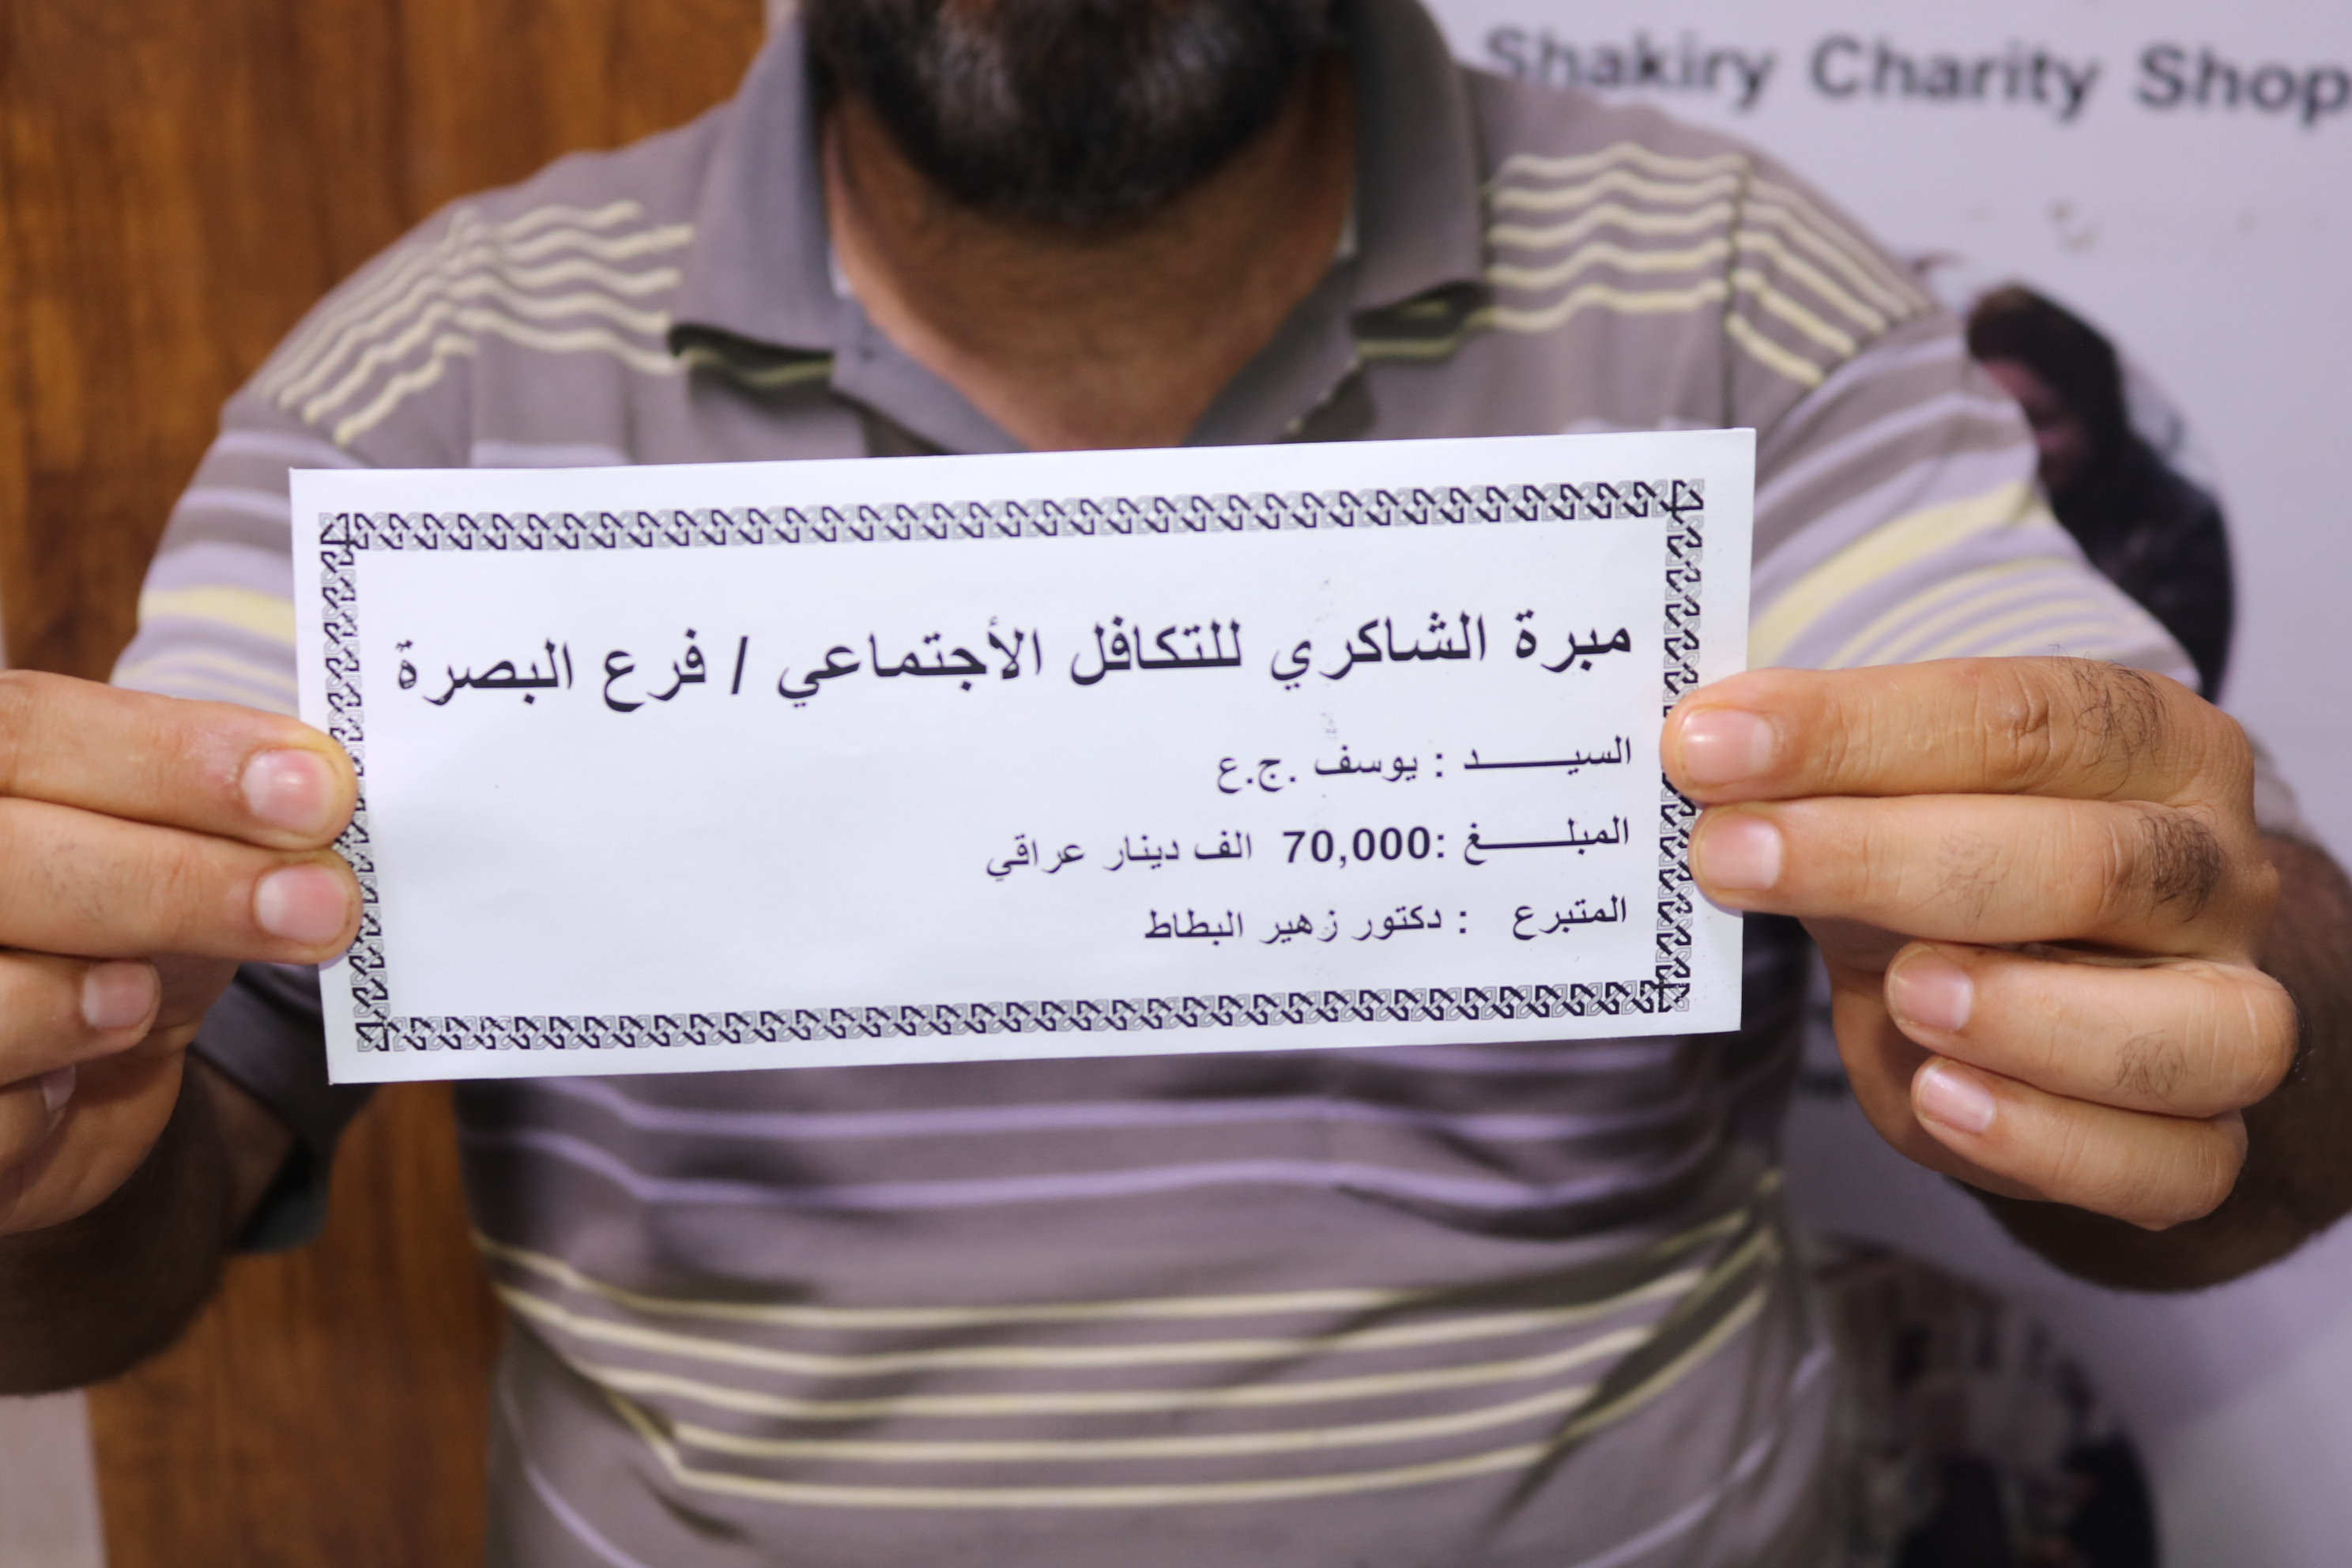 Shakiry Charity Shop
مبرة الشاكري للتكافل الأجتماعي / فرع البصرة
السيـــــــد : يوسف .ج.ع
المبلـــــــغ :70,000 الف دينار عراقي
المتبرع : دكتور زهير البطاط